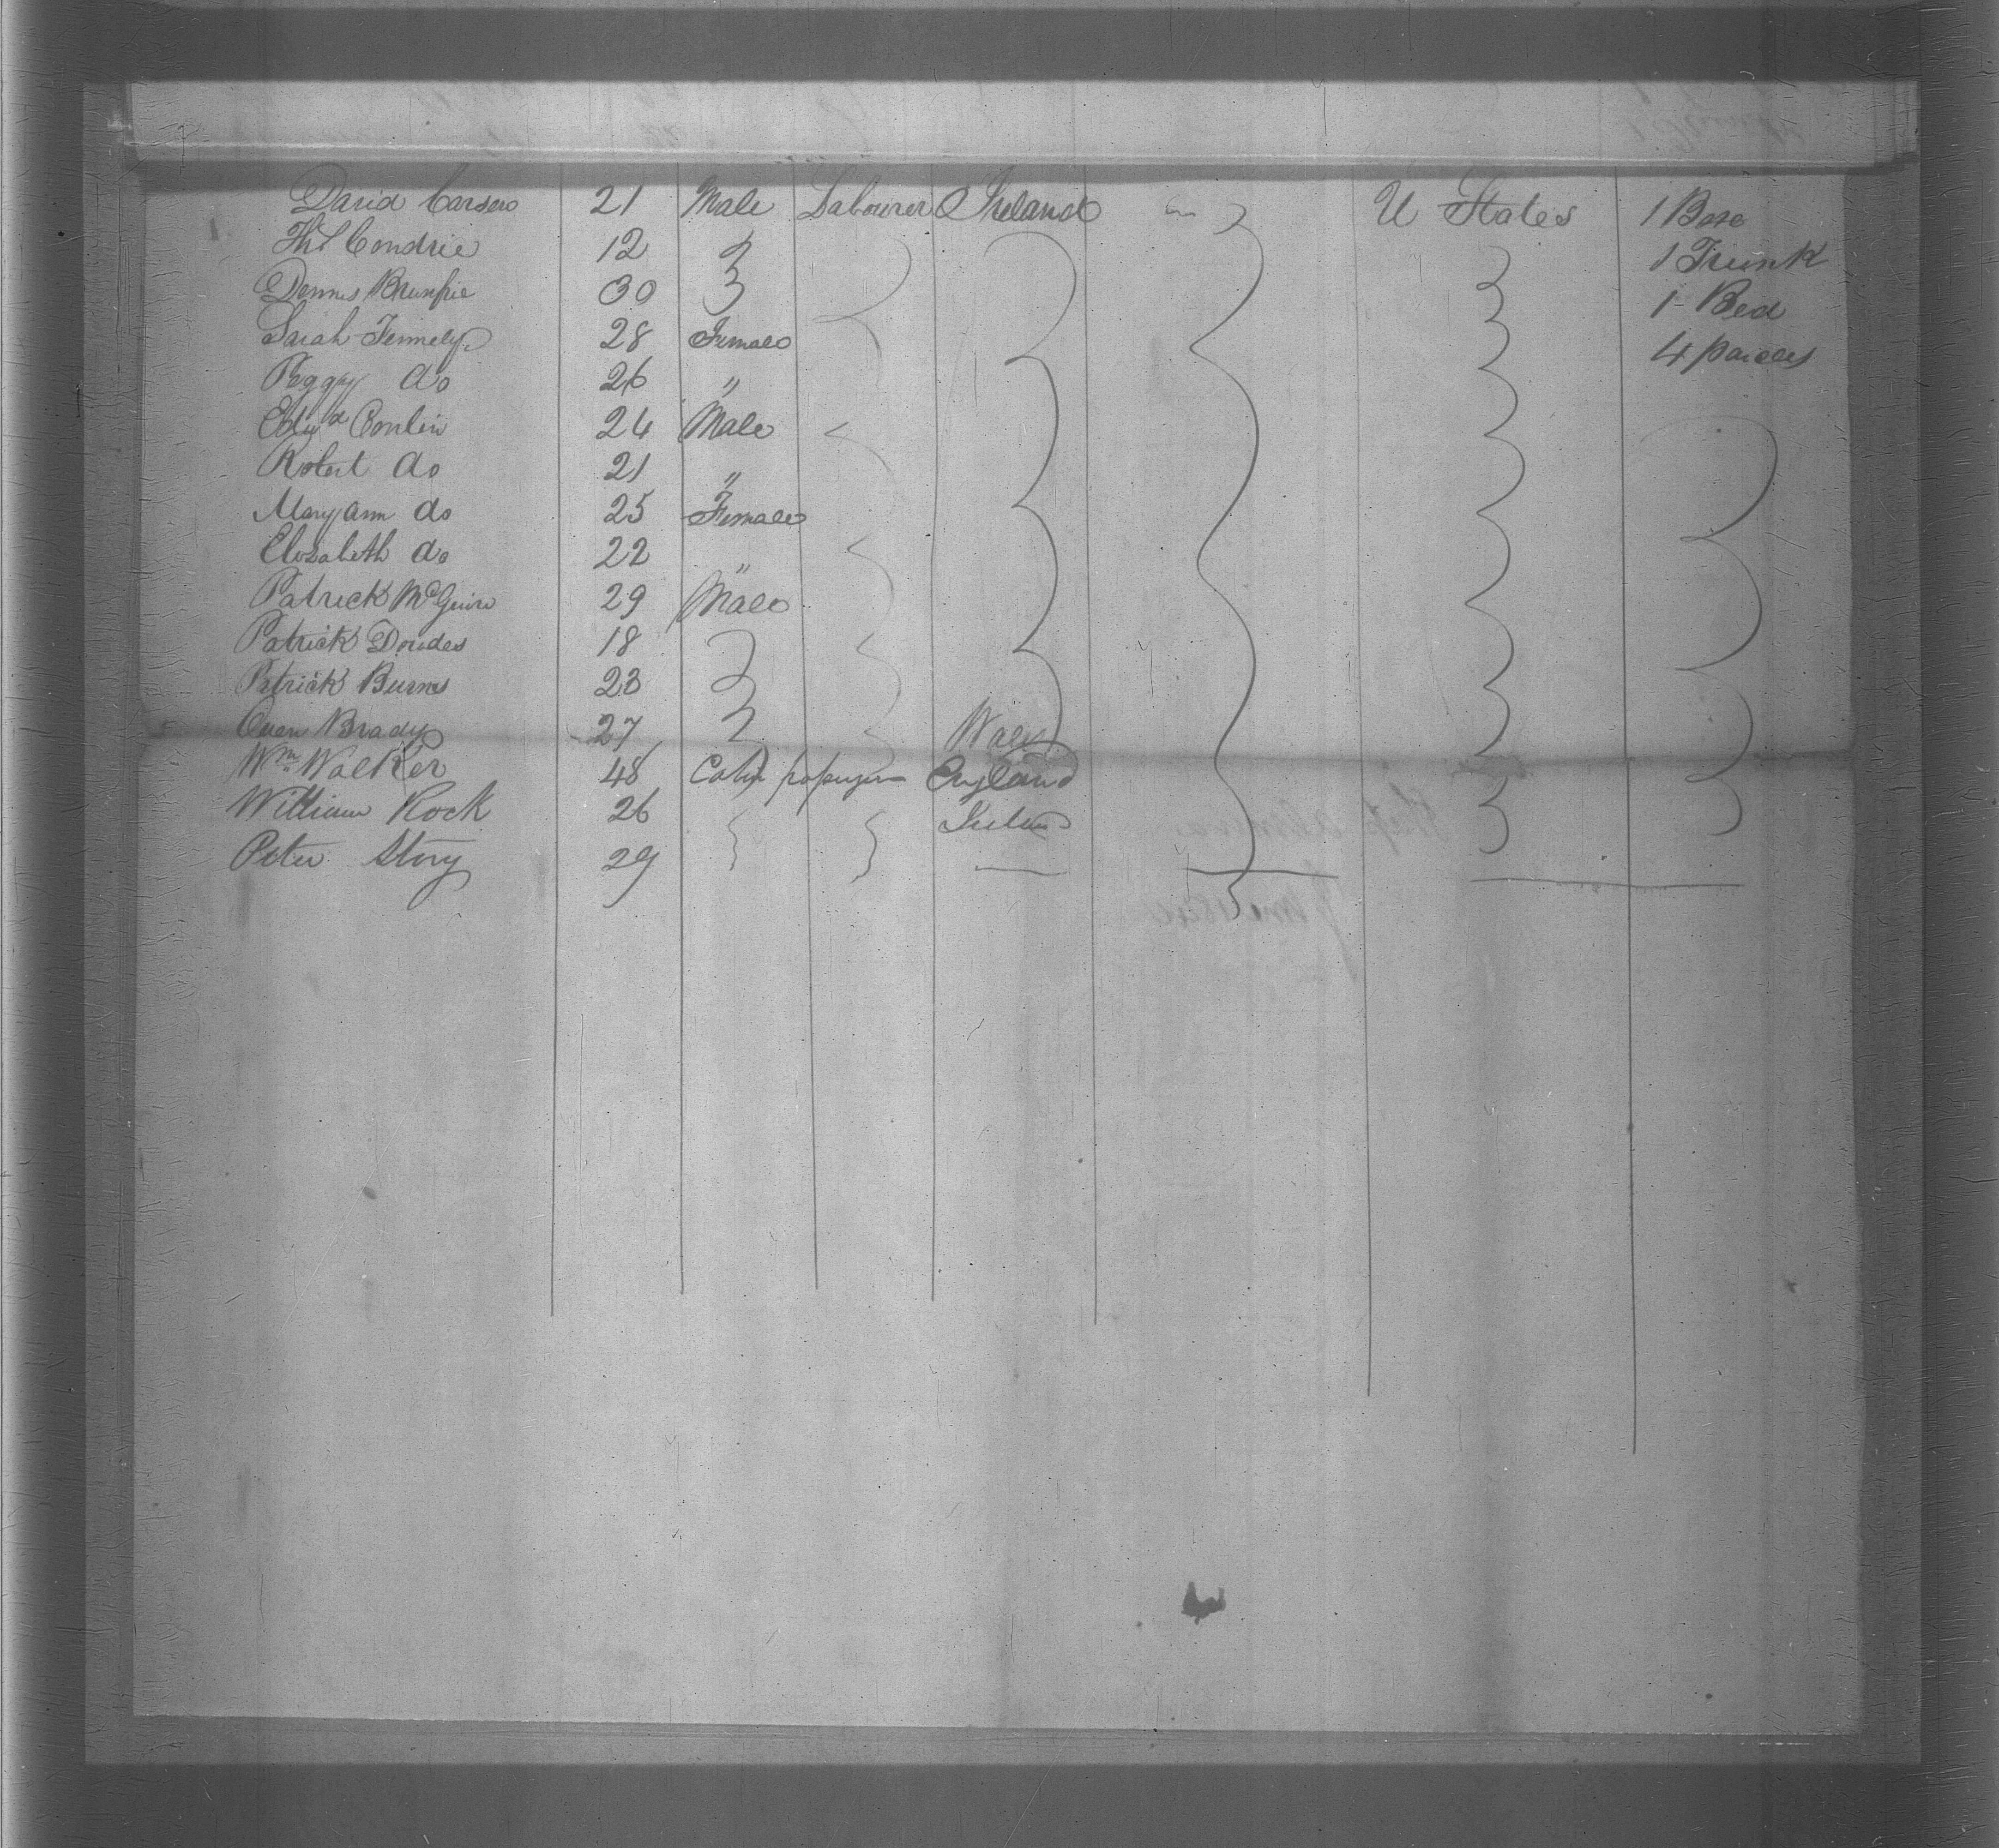 David Carson 21 Male Labourer Ireland U States 1 Box
Ths Condrie 12 1 Trunk
Dennis 30 1 Bed
Sarah Fennely 28 Female 4 parcels
Peggy do 26 "
Edwd Conlin 24 Male
Robert do 21 "
Mary Ann do 25 Female
Elizabeth do 22 "
Patrick McGuire 29 Male
Patrick 18
Patrick Burns 23
Owen Brady 27 Wales
Wm Walker 48 Cabin passenger England
William Rock 26 Ireland
Peter Story 29